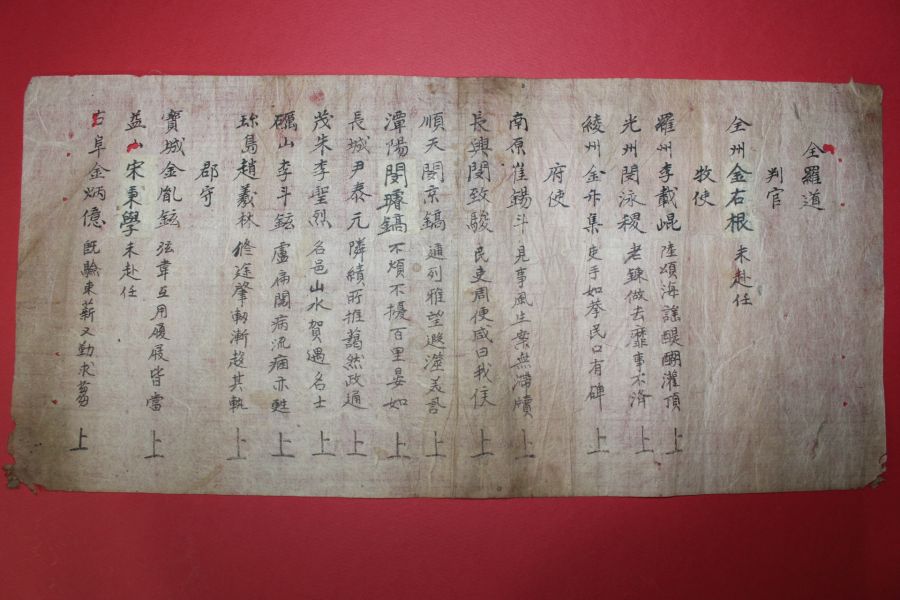 全羅道
判官
全州 金右根 未赴任
牧使
羅州 李載崐 陸頌海謠醍醐灌頂 上
光州 閔泳稷 老鍊做去靡事不済 上
綾州 金升集 吏手如拳民口有碑 上
府使
南原 崔錫斗 見事風生案無滯牘 上
長興 閔致駿 民吏周便咸曰我侯 上
順天 閔京鎬 通列雅望遐滋美譽 上
潭陽 閔璿鎬 不煩不擾百里晏如 上
長城 尹泰元 隣績所推藹然政通 上
茂朱 李聖烈 名邑山水賀遇名士 上
礪山 李斗鉉 盧扁閱病流痼亦甦 上
珍島 趙羲林 修途肇軔漸趍其軌 上
郡守
寶城 金胤鉉 弦韋互用履屐皆當 上
益山 宋秉學 未赴任
古阜 金炳億 旣驗束薪又勤求蒭 上